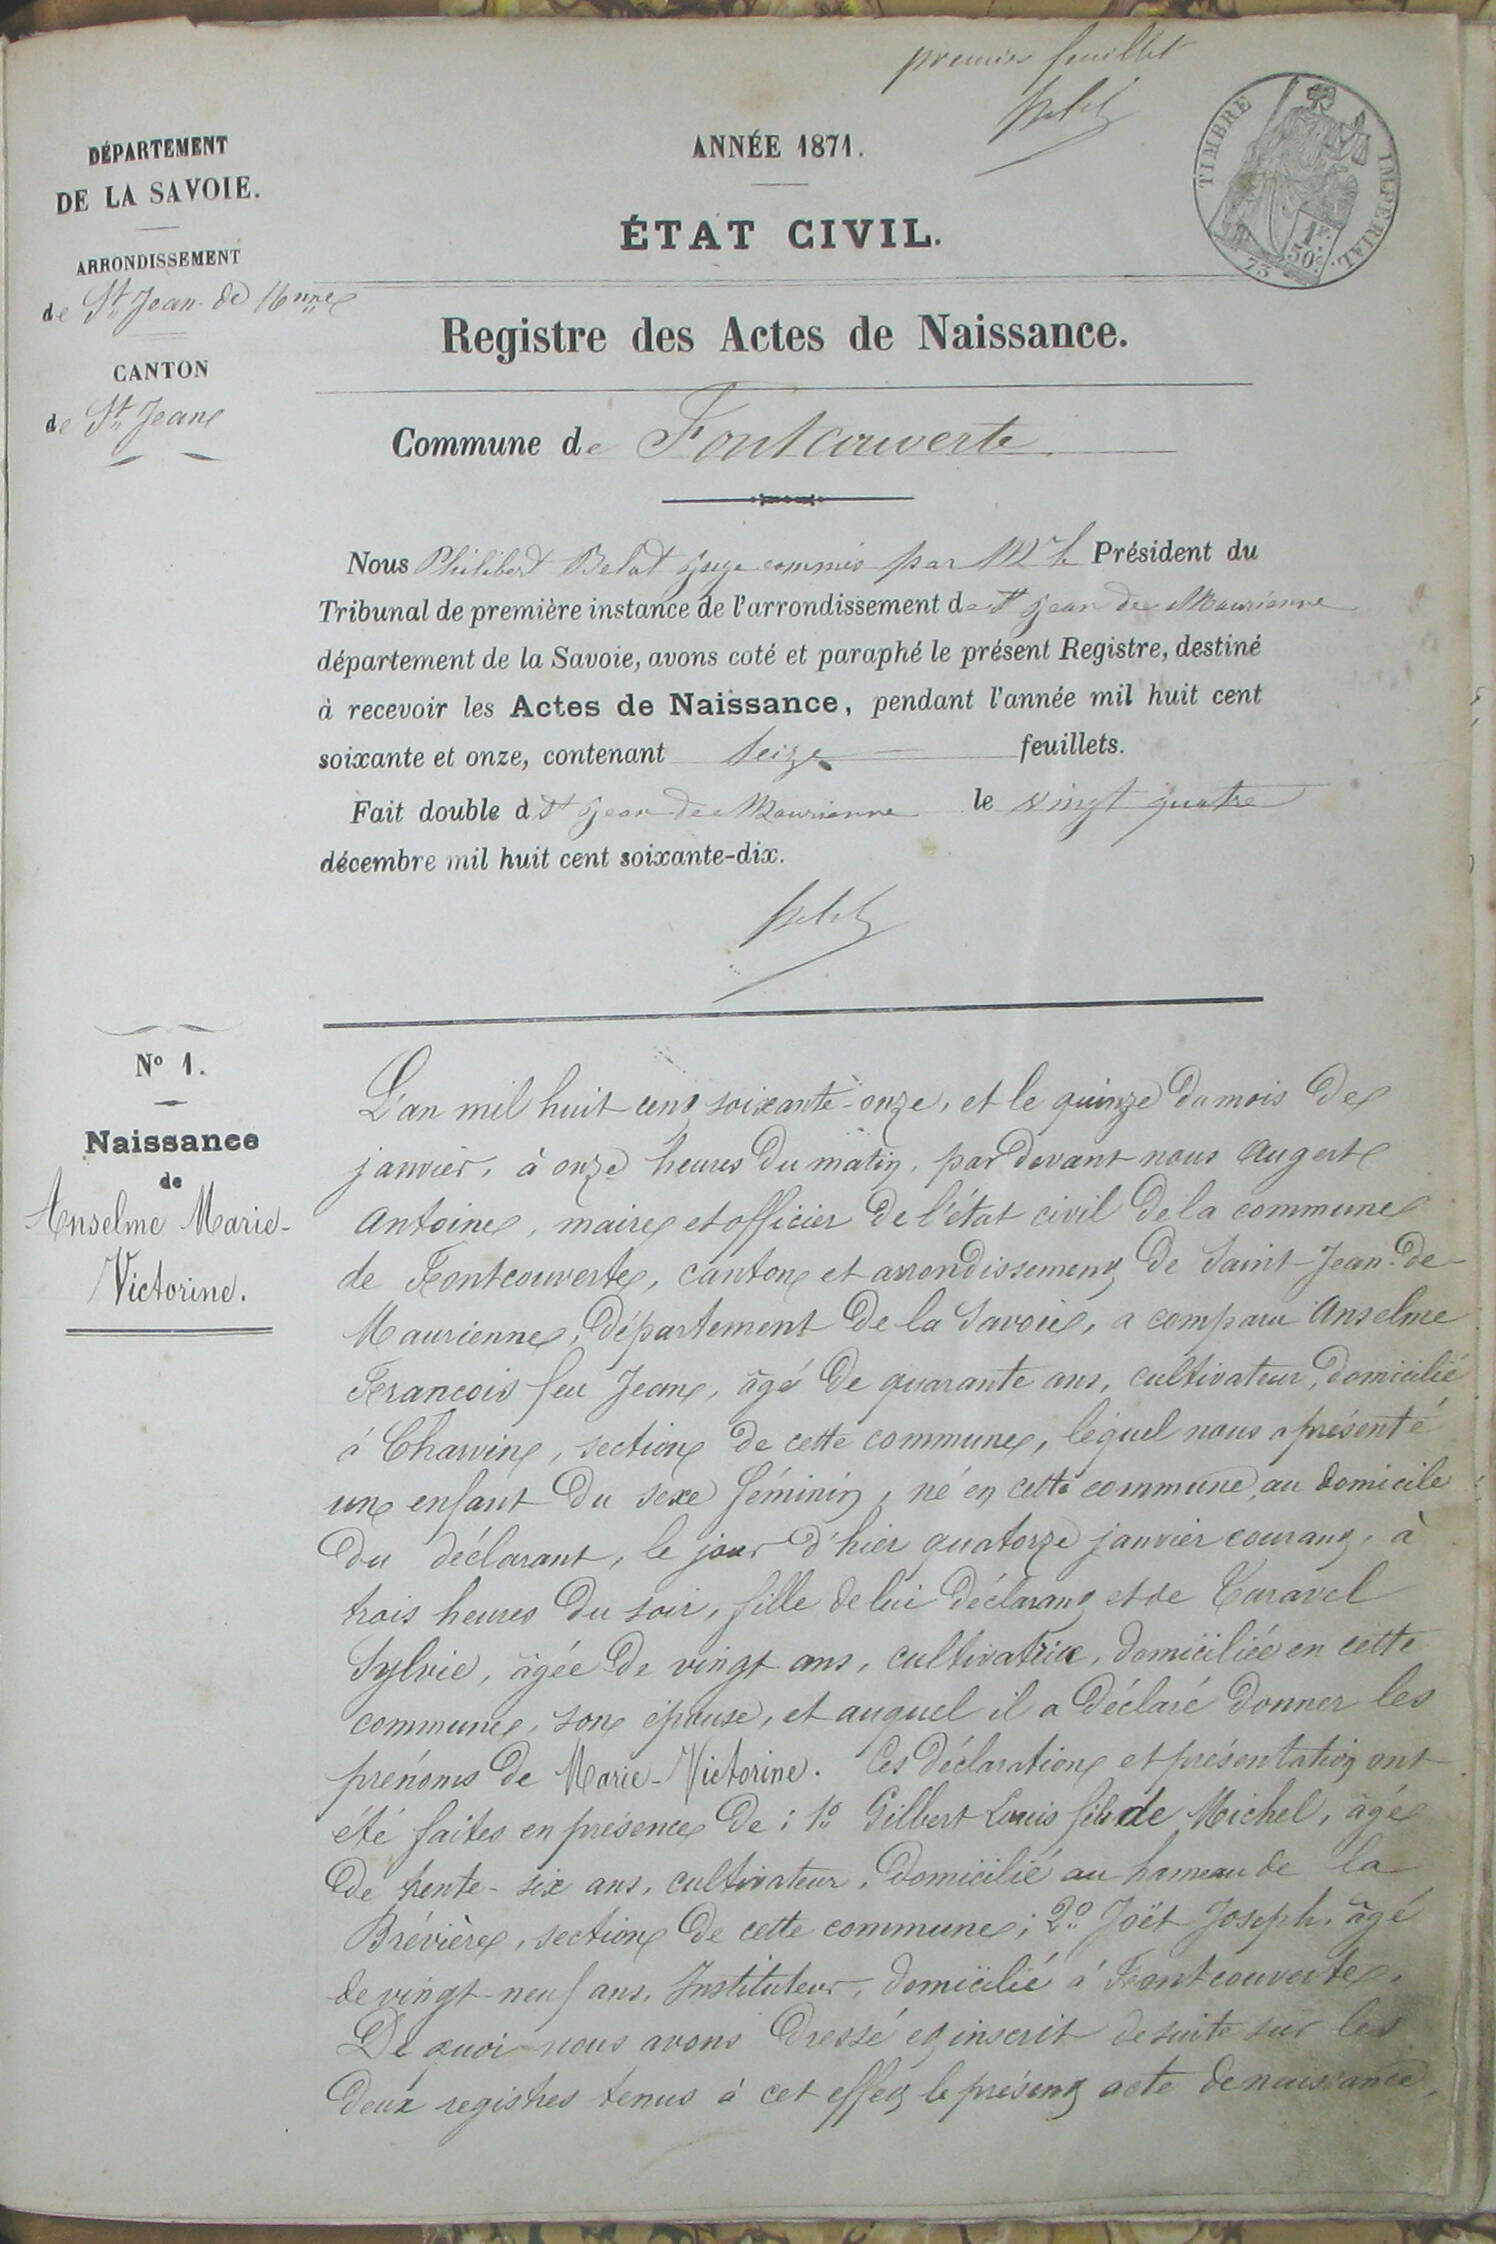 premier feuillet
DÉPARTEMENT
DE LA SAVOIE.
ARRONDISSEMENT
de St Jean de Mnne
CANTON
de St Jean
TIMBRE IMPERIAL
1F 50c
73
ANNÉE 1871.
ÉTAT CIVIL.
Registre des Actes de Naissance.
Commune de Fontcouverte
Nous Philibert Belat juge commis par Mr le Président du
Tribunal de première instance de l'arrondissement de St Jean de Maurienne
département de la Savoie, avons coté et paraphé le présent Registre, destiné
à recevoir les Actes de Naissance, pendant l'année mil huit cent
soixante et onze, contenant Seize feuillets.
Fait double à St Jean de Maurienne le vingt quatre
décembre mil huit cent soixante-dix.
No 1.
Naissance
de
Anselme Marie-
Victorine.
L'an mil huit cent soixante-onze, et le quinze du mois de
janvier, à onze heures du matin, par devant nous Augert
Antoine, maire et officier de l'état civil de la commune
de Fontcouverte, canton et arrondissement de Saint-Jean-de-
Maurienne, département de la Savoie, a comparu Anselme
François feu Jean, âgé de quarante ans, cultivateur, domicilié
à Charvin, section de cette commune, lequel nous a présenté
un enfant du sexe féminin, né en cette commune, au domicile
du déclarant, le jour d'hier quatorze janvier courant, à
trois heures du soir, fille de lui déclarant et de Taravel
Sylvie, âgée de vingt ans, cultivatrice, domiciliée en cette
commune, son épouse, et auquel il a déclaré donner les
prénoms de Marie-Victorine. Ces déclaration et présentation ont
été faites en présence de : 1o Gilbert Louis fils de Michel, âgé
de trente-six ans, cultivateur, domicilié au hameau de la
Brévière, section de cette commune; 2o Joët Joseph, âgé
de vingt-neuf ans, Instituteur, domicilié à Fontcouverte.
De quoi nous avons dressé et inscrit de suite sur les
deux registres tenus à cet effet le présent acte de naissance,